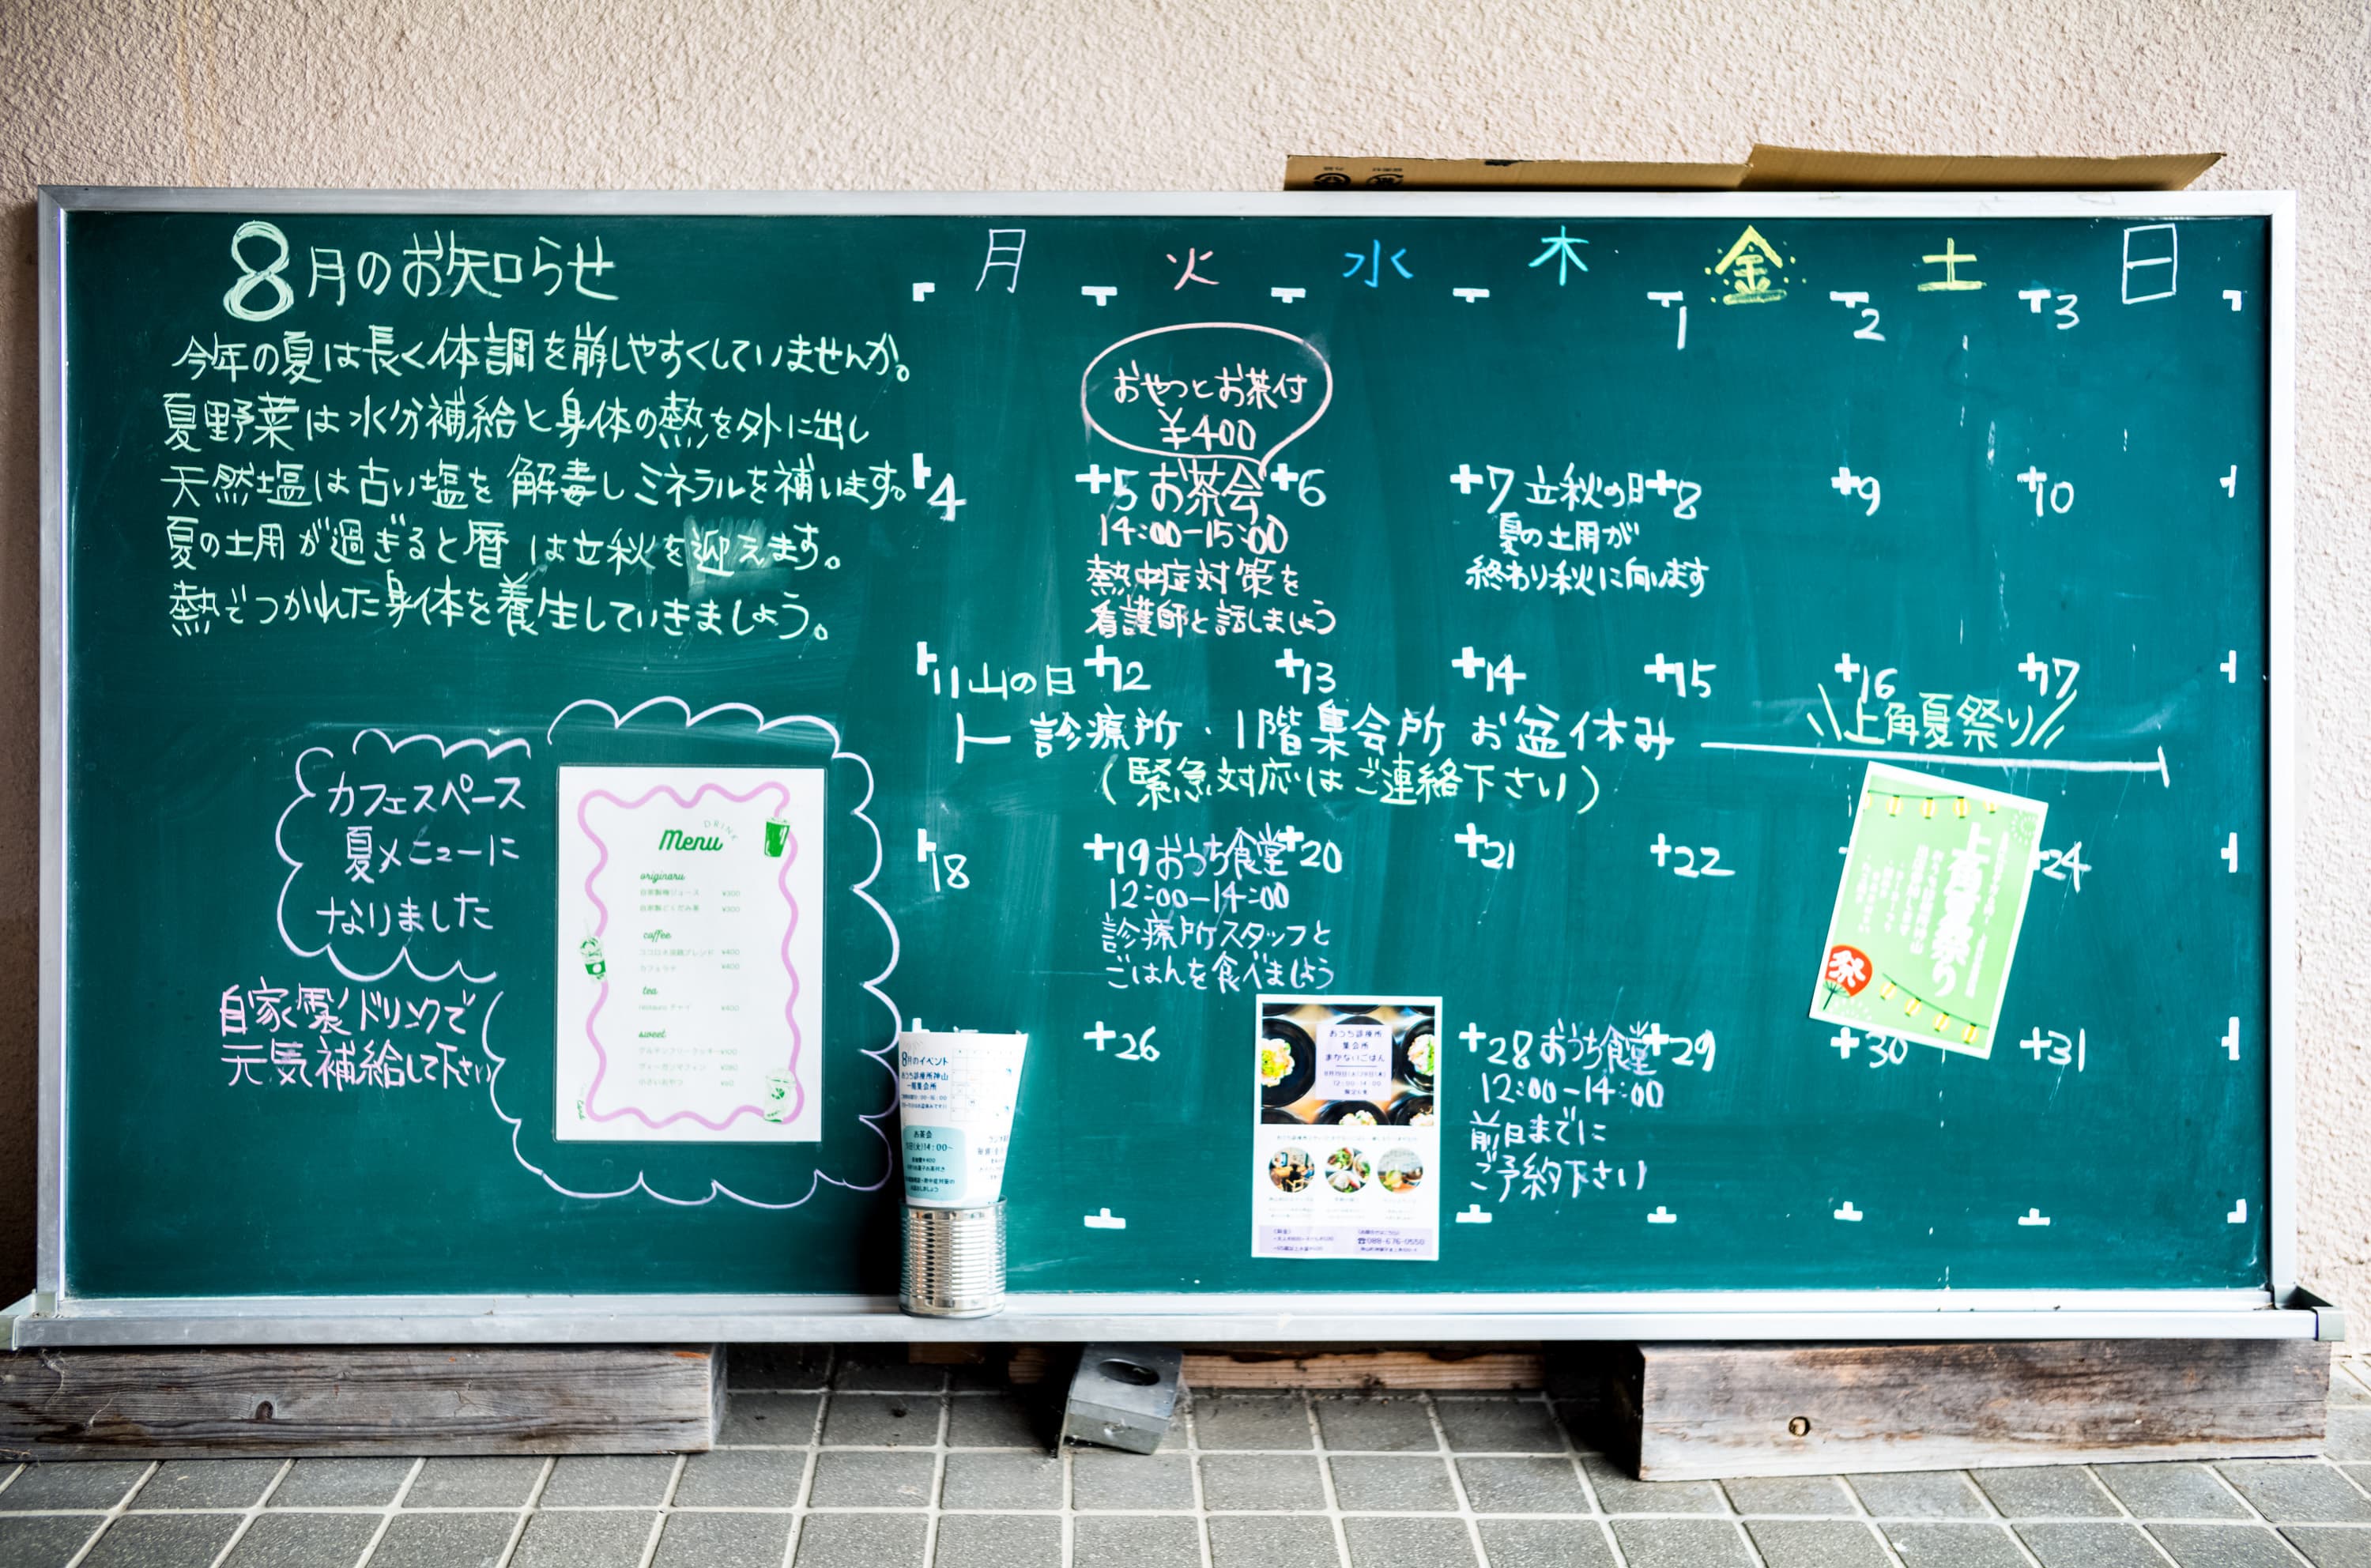 8月のお知らせ
今年の夏は長く体調を崩しやすくしていませんか。
夏野菜は水分補給と身体の熱を外に出し
天然塩は古い塩を解毒しミネラルを補います。
夏の土用が過ぎると暦は立秋を迎えます。
熱でつかれた身体を養生していきましょう。
カフェスペース
夏メニューに
なりました
自家製ドリンクで
元気補給して下さい
DRINK
Menu
originaru
自家製梅ジュース ¥300
自家製どくだみ茶 ¥300
coffee
¥400
カフェラテ ¥400
tea
チャイ
sweet
月 火 水 木 金 土 日
1 2 3
おやつとお茶付
¥400
4 5 お茶会 6 7 立秋の日 8 9 10
14:00-15:00
熱中症対策を
看護師と話しましょう
夏の土用が
終わり秋に向います
11 山の日 12 13 14 15 16 17
診療所・1階集会所 お盆休み
(緊急対応はご連絡下さい)
\\上角夏祭り//
18 19 おうち食堂 20 21 22 24
12:00-14:00
診療所スタッフと
ごはんを食べましょう
上角夏祭り
祭
26 28 おうち食堂 29 30 31
12:00-14:00
前日までに
ご予約下さい
8月のイベント
おうち診療所神山
一階集会所
お茶会
14:00~
おうち診療所
集会所
まかないごはん
12:00-14:00
☎088-676-0550